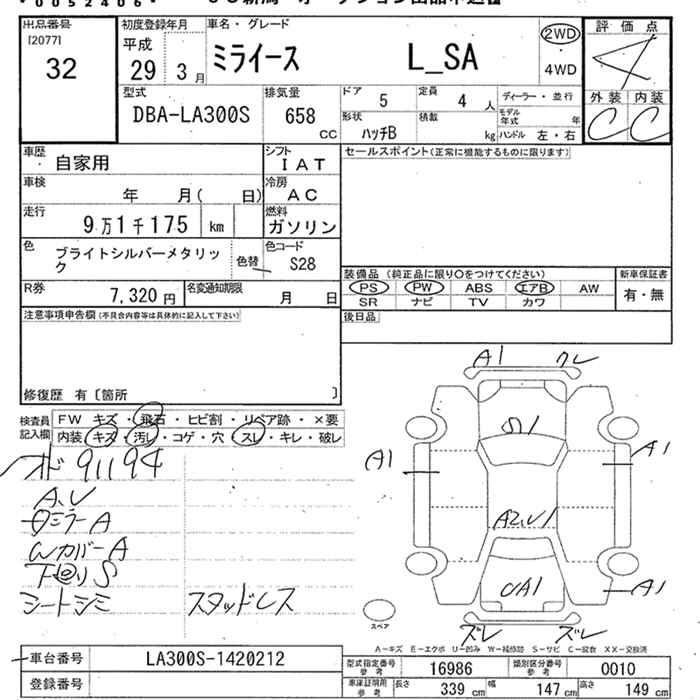 0052406
出品番号
[2077]
32
初度登録年月
平成
29年 3月
車名・グレード
ミライース L_SA
2WD
・
4WD
評価点
4
外装 内装
C C
型式
DBA-LA300S
排気量
658
cc
ドア 5
定員 4人
形状 ハッチB
積載 kg
ディーラー・並行
モデル年式 年
ハンドル 左・右
車歴
自家用
シフト
IAT
車検
年 月( 日)
冷房
AC
走行
9万1千175 km
燃料
ガソリン
色
ブライトシルバーメタリック
色替
色コード
S28
R券
7,320円
名変通知期限
月 日
セールスポイント(正常に機能するものに限ります)
装備品(純正品に限り〇をつけてください)
新車保証書
PS PW ABS エアB AW
SR ナビ TV カワ
有・無
後日品
注意事項申告欄(不具合内容等は具体的に記入して下さい)
修復歴 有〔箇所 〕
検査員記入欄
FW キズ・飛石・ヒビ割・リペア跡・×要
内装 キズ・汚レ・コゲ・穴・スレ・キレ・破レ
オド 91194
A、U
ミラーA
WカバーA
下廻りS
シートシミ スタッドレス
A1 クレ
A1
A1
A2、U1
UA1
A1
ズレ ズレ
スペア
A-キズ E-エクボ U-凹み W-補修跡 S-サビ C-腐食 XX-交換済
車台番号
LA300S-1420212
登録番号
型式指定番号 参考
16986
類別区分番号 参考
0010
車庫証明用 参考
長さ 339cm
幅 147cm
高さ 149cm